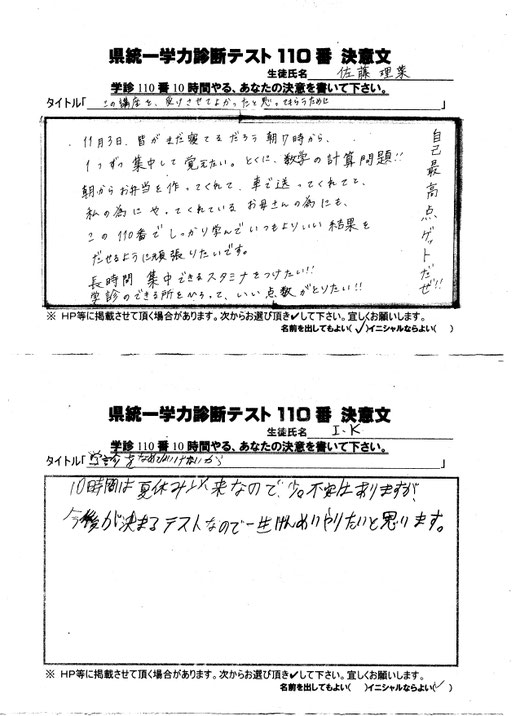 県統一学力診断テスト110番 決意文
生徒氏名 佐藤 理菜
学診110番10時間やる、あなたの決意を書いて下さい。
タイトル「この講座を、受けさせてよかったと思ってもらうために」
11月3日、皆がまだ寝てるだろう朝7時から、
1つずつ集中して覚えたい。とくに、数学の計算問題!!
朝からお弁当を作ってくれて、車で送ってくれてて、
私の為にやってくれているお母さんの為にも、
この110番でしっかり学んでいつもよりいい結果を
だせるように頑張りたいです。
長時間集中できるスタミナをつけたい!!
学診のできる所をひろって、いい点数がとりたい!!
自己最高点ゲットだぜ!!
※ HP等に掲載させて頂く場合があります。次からお選び頂き✔して下さい。宜しくお願いします。
名前を出してもよい(✓)イニシャルならよい( )
県統一学力診断テスト110番 決意文
生徒氏名 I.K
学診110番10時間やる、あなたの決意を書いて下さい。
タイトル「学診をなめてはいけないから」
10時間は夏休み以来なので、少し不安はありますが、
今後が決まるテストなので一生けんめいやりたいと思います。
※ HP等に掲載させて頂く場合があります。次からお選び頂き✔して下さい。宜しくお願いします。
名前を出してもよい( )イニシャルならよい(✓)